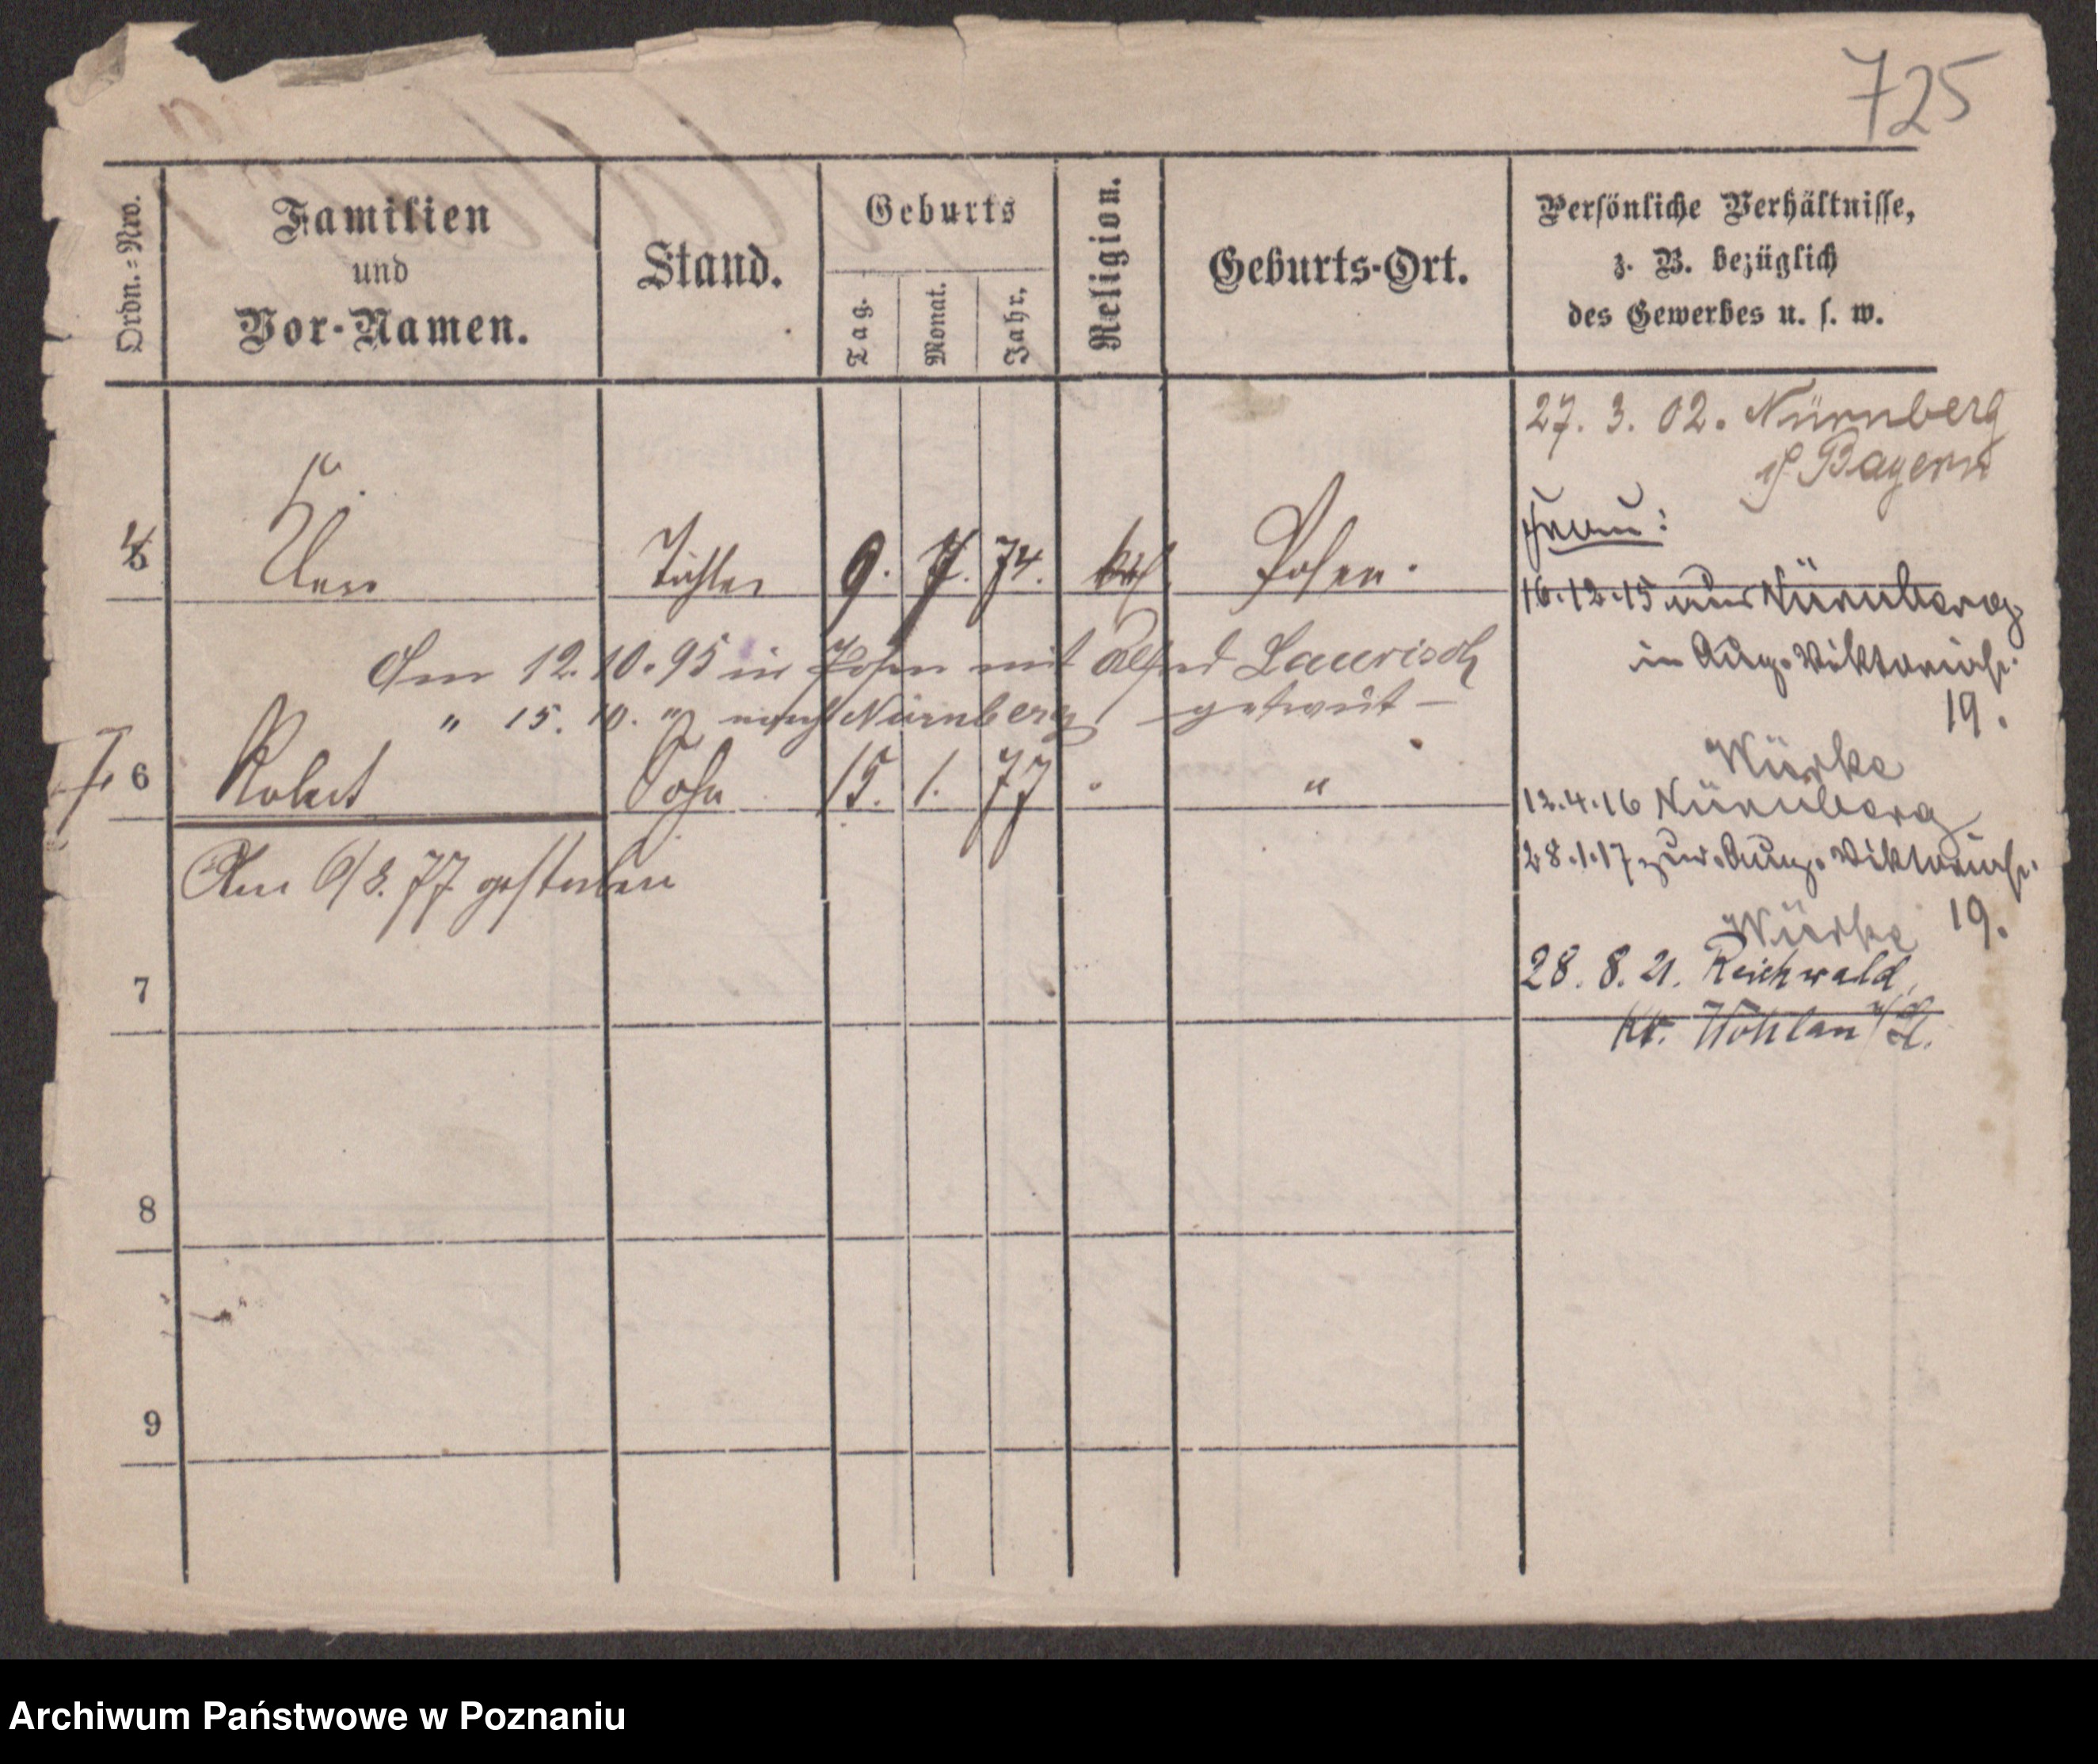 725
Ordn.=Nro.
Familien
und
Vor-Namen.
Stand.
Geburts
Tag.
Monat.
Jahr.
Religion.
Geburts-Ort.
Persönliche Verhältnisse,
z. B. bezüglich
des Gewerbes u. s. w.
27. 3. 02. Nürnberg
i/ Bayern
Frau:
5 Tochter 9. 7. 74. kath. Posen.
16.12.15 aus Nürnberg
in Aug. Viktoriastr.
19.
Am 12.10.95 in Posen mit Alfred Laurisch
" 15. 10. " nach Nürnberg getraut –
6 Robert Sohn 15. 1. 77 "
12.4.16 Nürnberg
28.1.17 zur. Aug. Viktoriastr.
19.
Am 6/8. 77 gestorben
28. 8. 21. Reichwald,
Kr. Wohlau
7
8
9
Archiwum Państwowe w Poznaniu